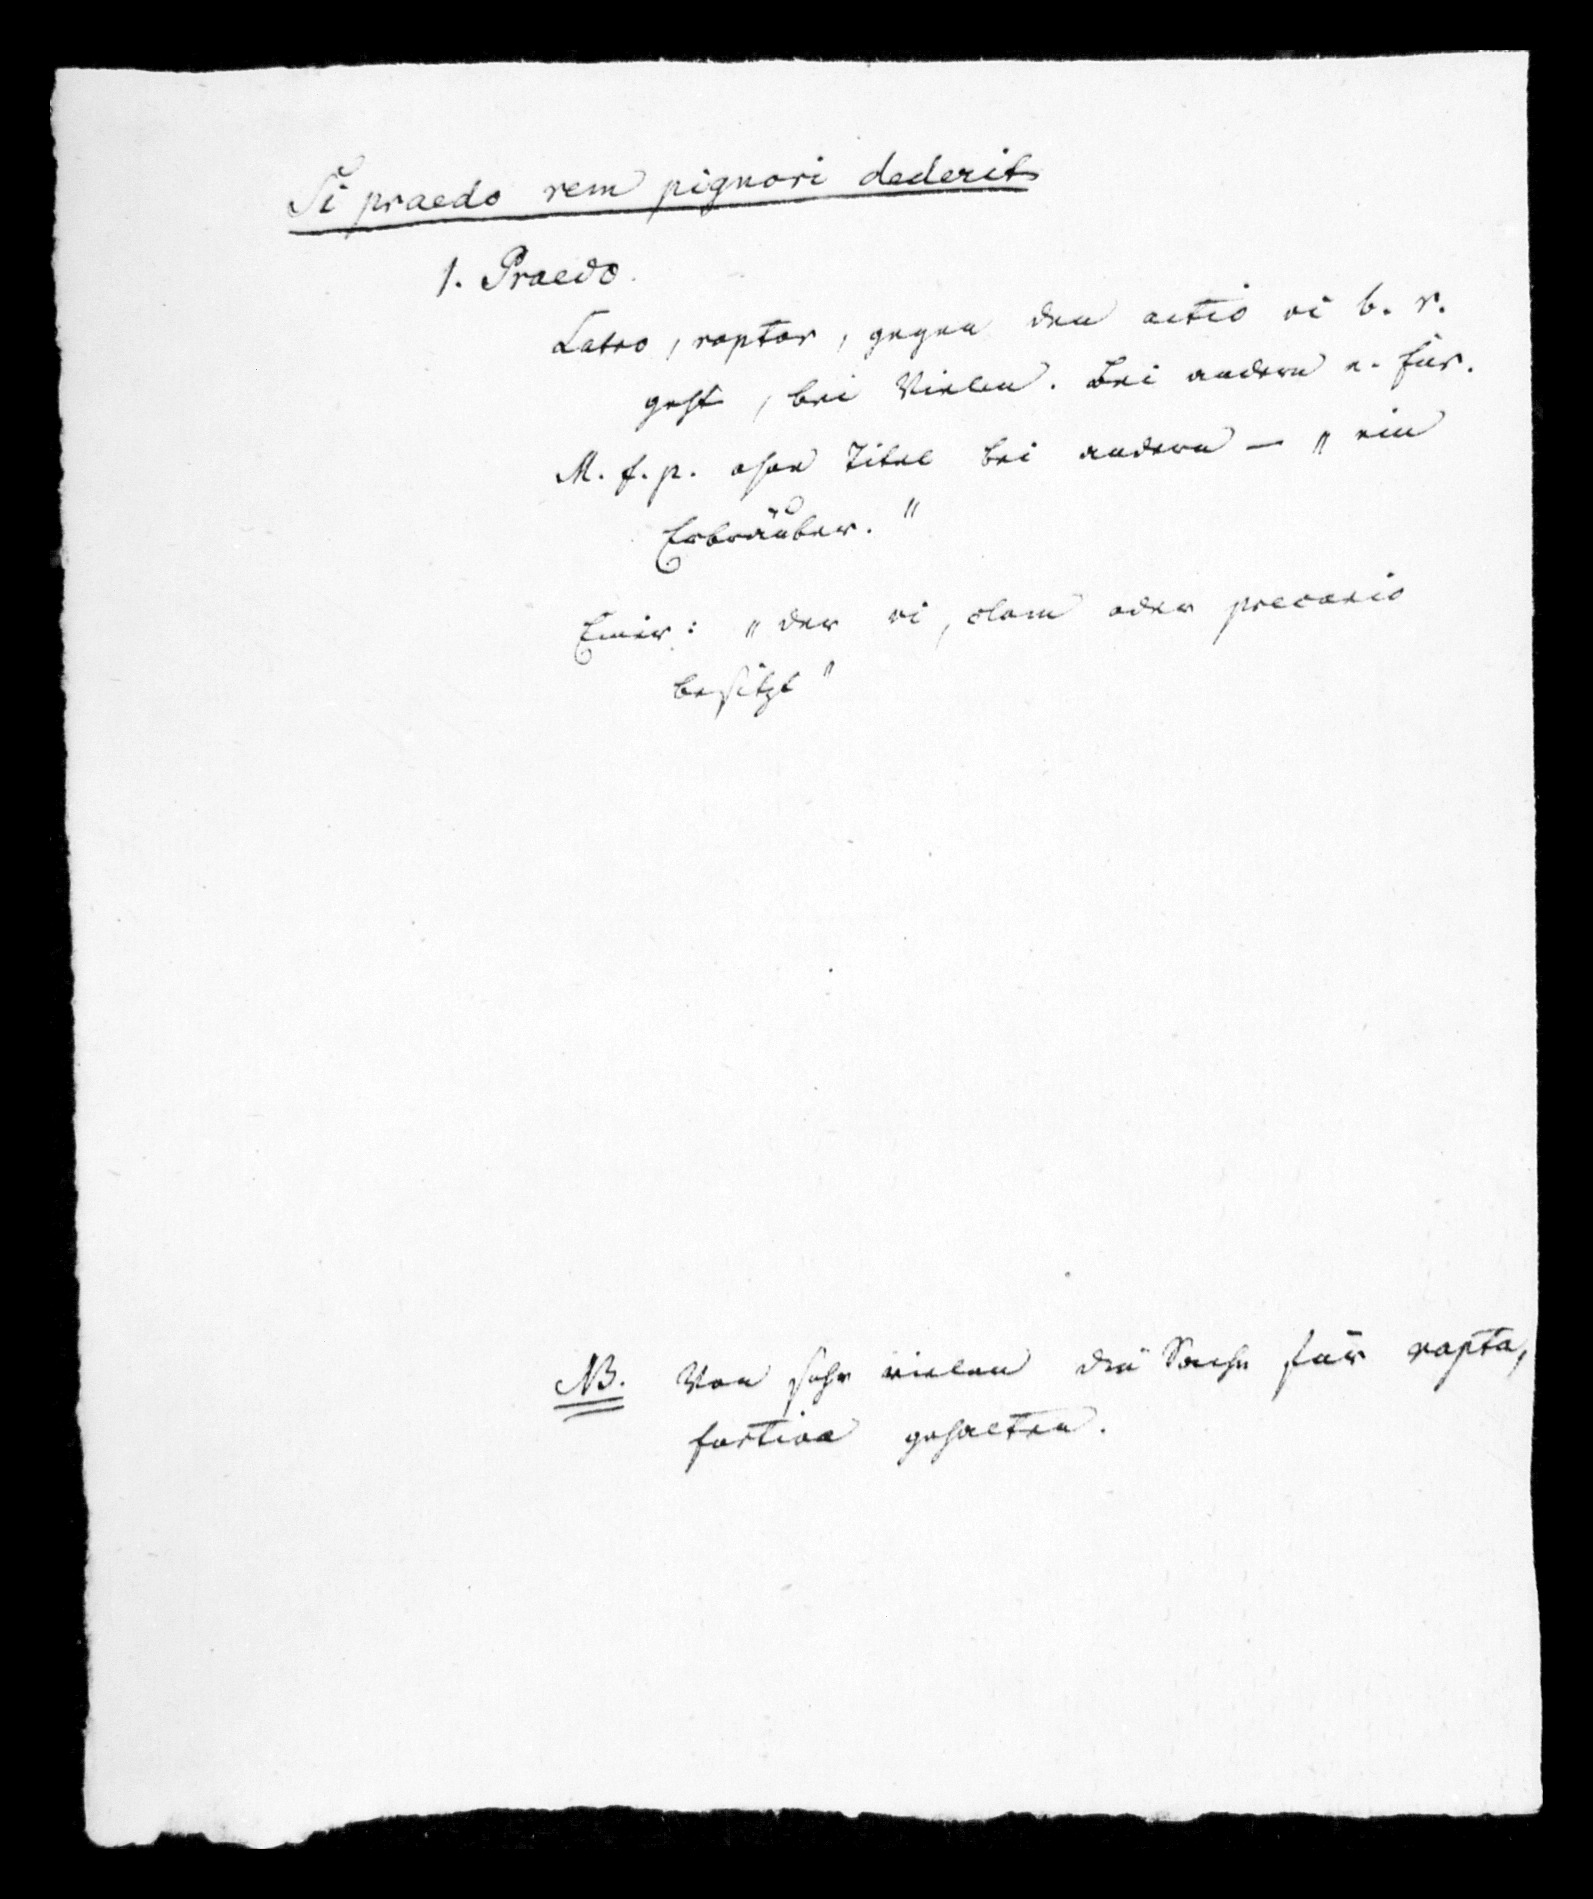 Si praedo rem pignori dederit
1. Praedo.
Latro, raptor, gegen den actio vi b. r.
geht, bei Vielen. Bei andern e. fur.
M. f. p. ohne Titel bei andern — „ein
Erbräuber."
Einer: „der vi, clam oder precario
besitzt"
NB. Von sehr vielen die Sache für rapta,
furtiva gehalten.